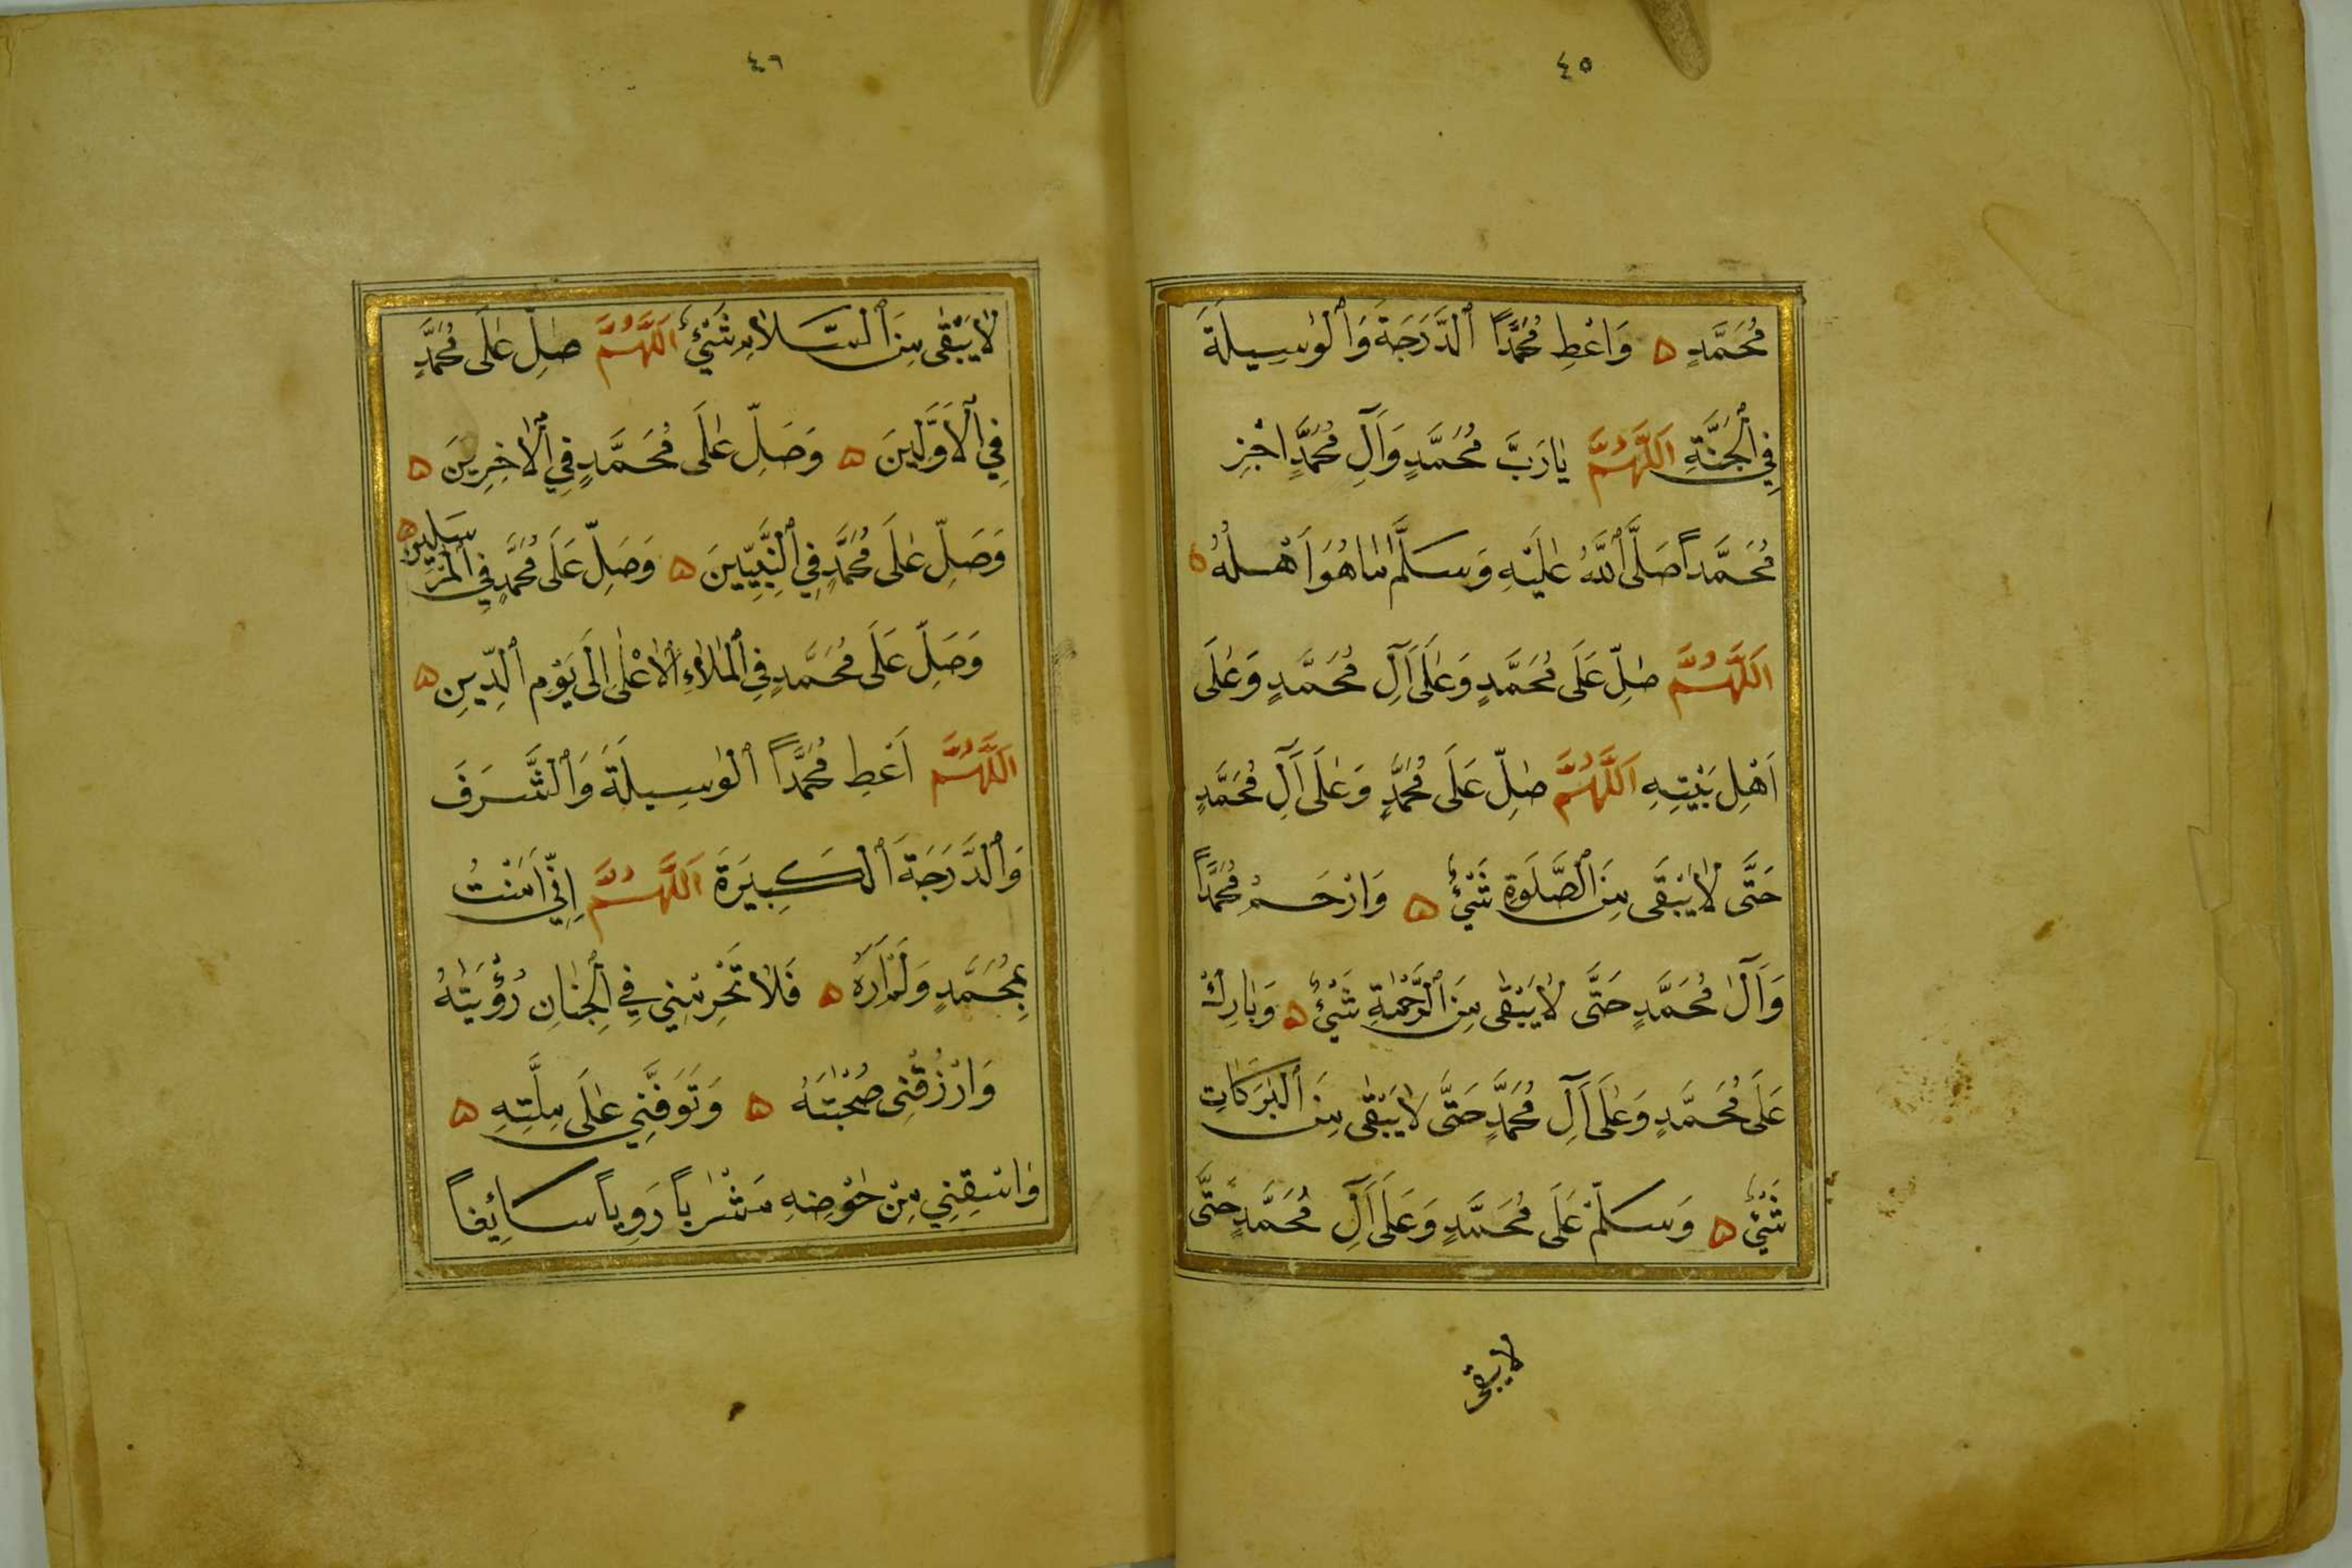 ٤٥
مُحَمَّدٍ ۵ وَاَعْطِ مُحَمَّدًا ٱلدَّرَجَةَ وَٱلْوَسِيلَةَ
فِي ٱلْجَنَّةِ اَللَّهُمَّ يَارَبَّ مُحَمَّدٍ وَآلِ مُحَمَّدٍ اجْزِ
مُحَمَّداً صَلَّى ٱللَّهُ عَلَيْهِ وَسَلَّمَ مَاهُوَ اَهْلُهُ ۵
اَللَّهُمَّ صَلِّ عَلَى مُحَمَّدٍ وَعَلَى آلِ مُحَمَّدٍ وَعَلَى
اَهْلِ بَيْتِهِ اَللَّهُمَّ صَلِّ عَلَى مُحَمَّدٍ وَعَلَى آلِ مُحَمَّدٍ
حَتَّى لَايَبْقَى مِنَ ٱلصَّلَوةِ شَيْئٌ ۵ وَارْحَمْ مُحَمَّدًا
وَآلَ مُحَمَّدٍ حَتَّى لَايَبْقَى مِنَ ٱلرَّحْمَةِ شَيْئٌ ۵ وَبَارِكْ
عَلَى مُحَمَّدٍ وَعَلَى آلِ مُحَمَّدٍ حَتَّى لَايَبْقَى مِنَ ٱلْبَرَكَاتِ
شَيْئٌ ۵ وَسَلِّمْ عَلَى مُحَمَّدٍ وَعَلَى آلِ مُحَمَّدٍ حَتَّى
لايبقى
٤٦
لَايَبْقَى مِنَ ٱلسَّلَامِ شَيْئٌ اَللَّهُمَّ صَلِّ عَلَى مُحَمَّدٍ
فِي ٱلْاَوَّلِينَ ۵ وَصَلِّ عَلَى مُحَمَّدٍ فِي ٱلْاخِرِينَ ۵
وَصَلِّ عَلَى مُحَمَّدٍ فِي ٱلنَّبِيِّينَ ۵ وَصَلِّ عَلَى مُحَمَّدٍ فِي ٱلْمُرْسَلِينَ ۵
وَصَلِّ عَلَى مُحَمَّدٍ فِي ٱلْمَلَاءِ ٱلْاَعْلَى اِلَى يَوْمِ ٱلدِّينِ ۵
اَللَّهُمَّ اَعْطِ مُحَمَّدًا ٱلْوَسِيلَةَ وَٱلشَّرَفَ
وَٱلدَّرَجَةَ ٱلْكَبِيرَةَ اَللَّهُمَّ اِنِّي اَمَنْتُ
بِمُحَمَّدٍ وَلَمْ اَرَهُ ۵ فَلَا تَحْرِمْنِي فِي ٱلْجِنَانِ رُؤْيَتَهُ
وَارْزُقْنِى صُحْبَتَهُ ۵ وَتَوَفَّنِي عَلَى مِلَّتِهِ ۵
وَاسْقِنِي مِنْ حَوْضِهِ مَشْرَباً رَوِياً سَائِغاً